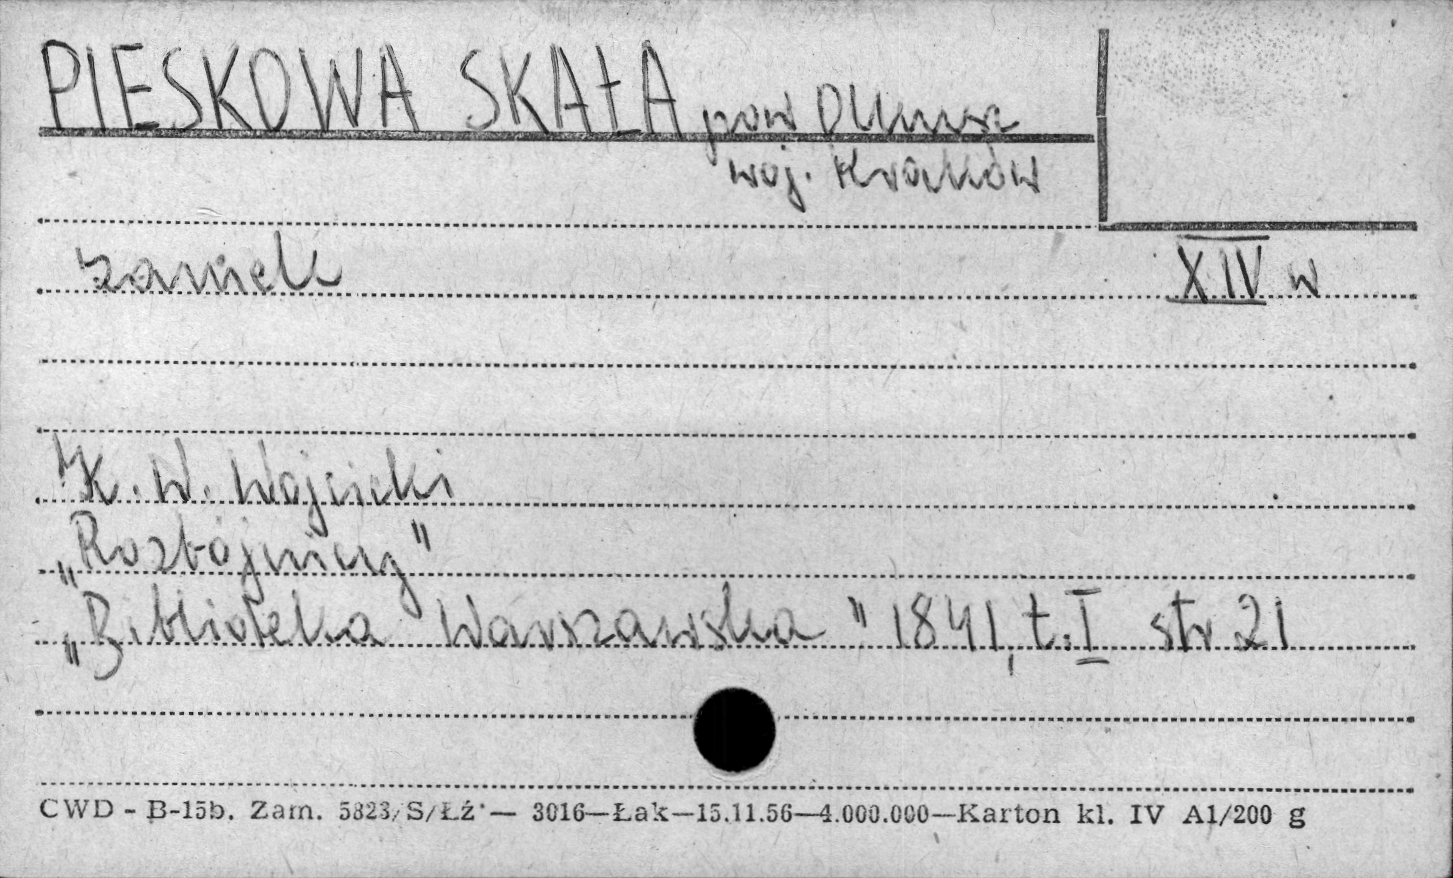 PIESKOWA SKAŁA pow Olkusz
woj. Kraków
zamek XIV w
K. W. Wojcicki
„Rozbójnicy"
„Biblioteka Warszawska" 1841, t. I str 21
CWD - B-15b. Zam. 5823/S/Łź — 3016—Łak—15.11.56—4.000.000—Karton kl. IV A1/200 g